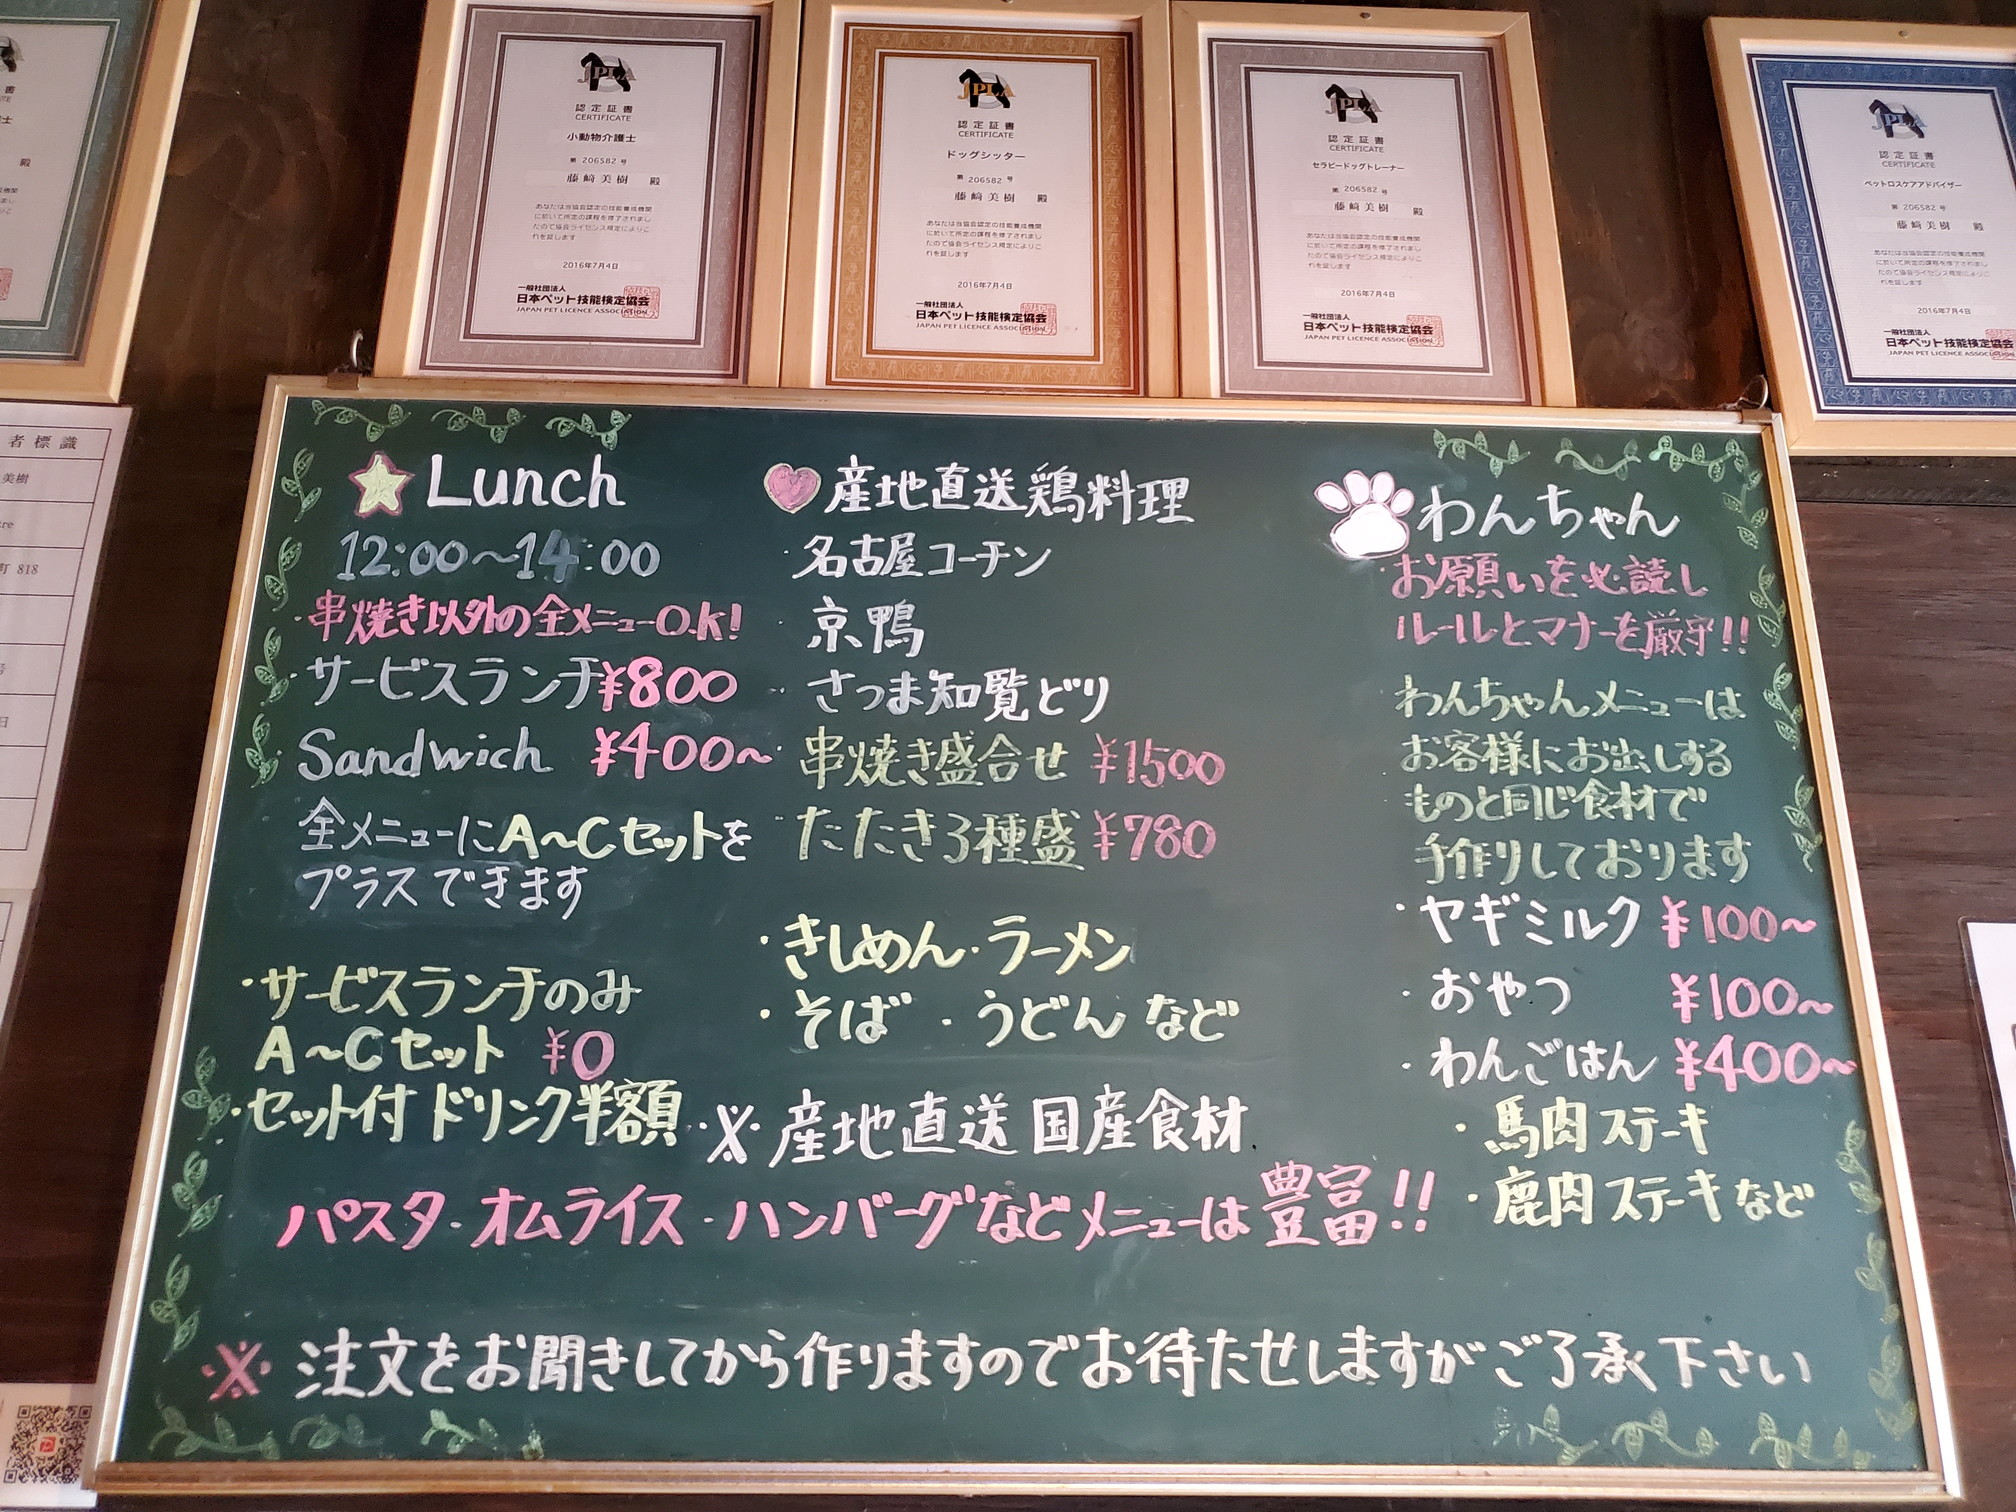 JPLA
認定証書
CERTIFICATE
小動物介護士
第 206582 号
藤﨑美樹 殿
あなたは当協会認定の技能養成機関
に於いて所定の課程を修了されまし
たので協会ライセンス規定によりこ
れを証します
2016年7月4日
一般社団法人
日本ペット技能検定協会
JAPAN PET LICENCE ASSOCIATION
JPLA
認定証書
CERTIFICATE
ドッグシッター
第 206582 号
藤﨑美樹 殿
あなたは当協会認定の技能養成機関
に於いて所定の課程を修了されまし
たので協会ライセンス規定によりこ
れを証します
2016年7月4日
一般社団法人
日本ペット技能検定協会
JAPAN PET LICENCE ASSOCIATION
JPLA
認定証書
CERTIFICATE
セラピードッグトレーナー
第 206582 号
藤﨑美樹 殿
あなたは当協会認定の技能養成機関
に於いて所定の課程を修了されまし
たので協会ライセンス規定によりこ
れを証します
2016年7月4日
一般社団法人
日本ペット技能検定協会
JAPAN PET LICENCE ASSOCIATION
JPLA
認定証書
CERTIFICATE
ペットロスケアアドバイザー
第 206582 号
藤﨑美樹 殿
あなたは当協会認定の技能養成機関
に於いて所定の課程を修了されまし
たので協会ライセンス規定によりこ
れを証します
2016年7月4日
一般社団法人
日本ペット技能検定協会
JAPAN PET LICENCE ASSOCIATION
殿
者標識
美樹
町 818
Lunch
12:00〜14:00
・串焼き以外の全メニューO.k!
・サービスランチ¥800
Sandwich ¥400〜
全メニューにA〜Cセットを
プラスできます
・サービスランチのみ
A〜Cセット ¥0
・セット付ドリンク半額
産地直送鶏料理
・名古屋コーチン
・京鴨
・さつま知覧どり
・串焼き盛合せ ¥1500
・たたき3種盛 ¥780
・きしめん・ラーメン
・そば・うどんなど
※産地直送国産食材
パスタ・オムライス・ハンバーグなどメニューは豊富!!
わんちゃん
・お願いを必読し
ルールとマナーを厳守!!
わんちゃんメニューは
お客様にお出しする
ものと同じ食材で
手作りしております
・ヤギミルク ¥100〜
・おやつ ¥100〜
・わんごはん ¥400〜
・馬肉ステーキ
・鹿肉ステーキなど
※注文をお聞きしてから作りますのでお待たせしますがご了承下さい